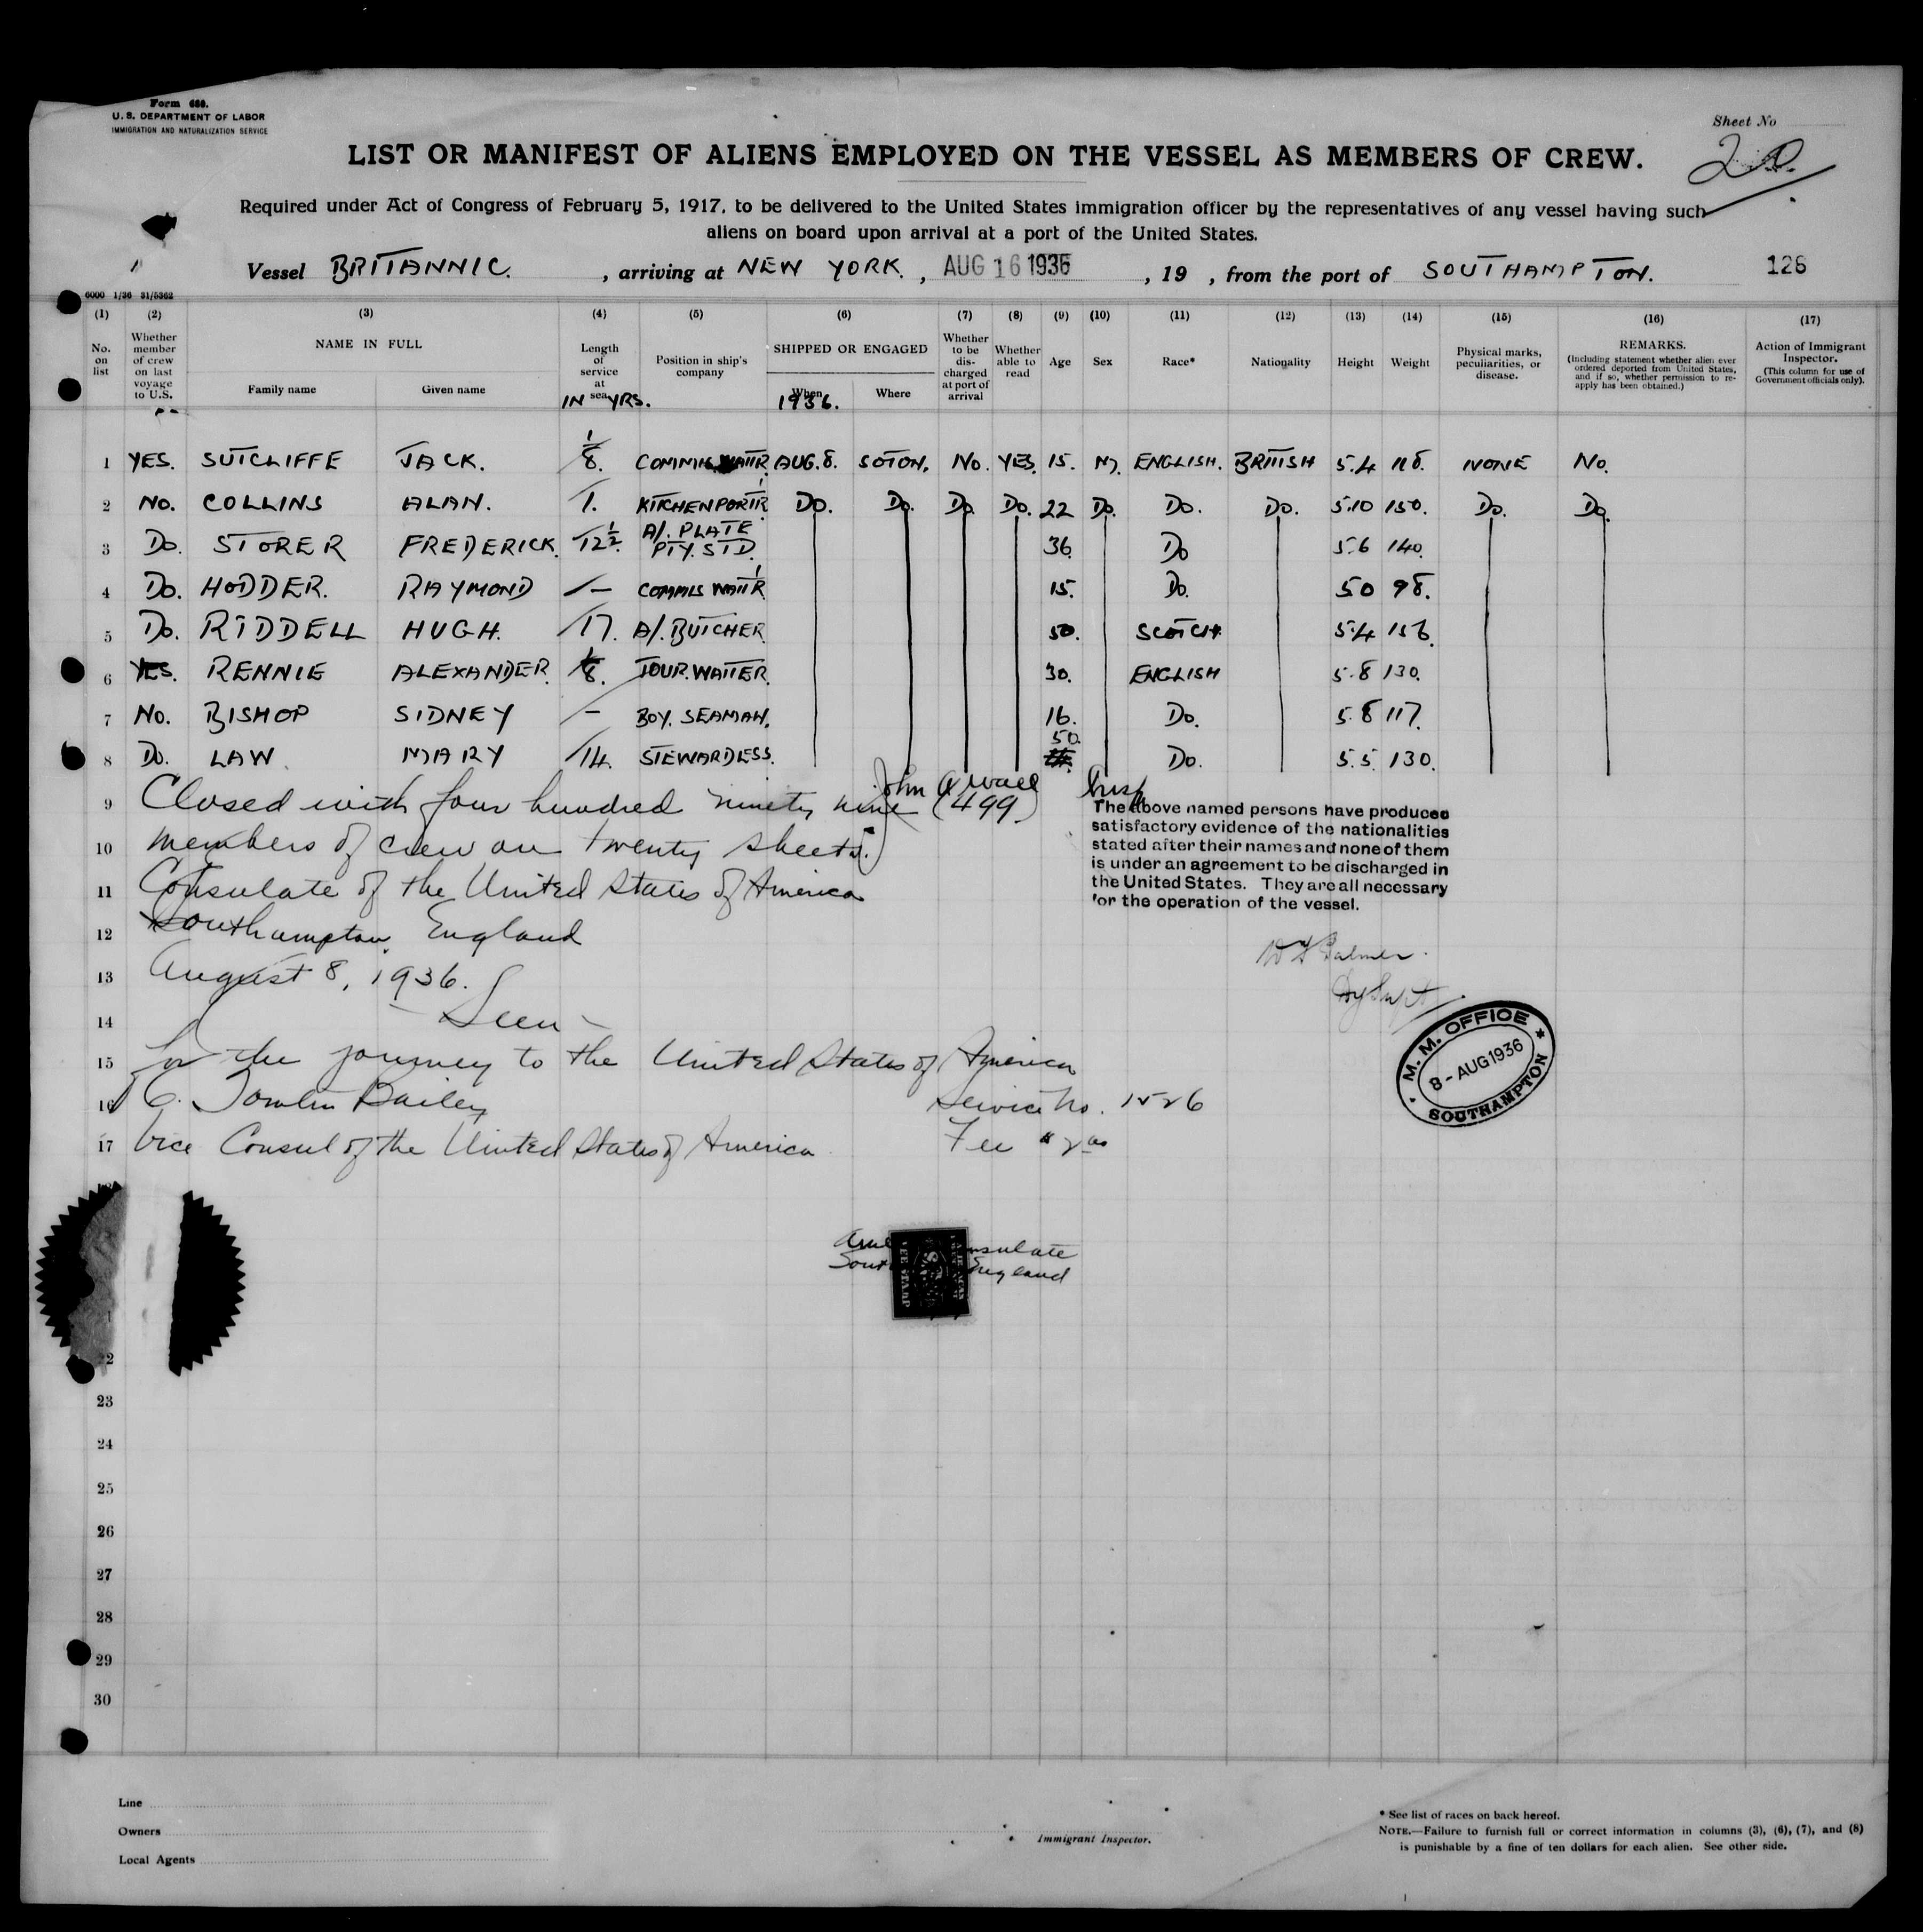 Form 680.
U. S. DEPARTMENT OF LABOR
IMMIGRATION AND NATURALIZATION SERVICE
Sheet No
20.
LIST OR MANIFEST OF ALIENS EMPLOYED ON THE VESSEL AS MEMBERS OF CREW.
Required under Act of Congress of February 5, 1917, to be delivered to the United States immigration officer by the representatives of any vessel having such
aliens on board upon arrival at a port of the United States.
Vessel BRITANNIC. , arriving at NEW YORK. , AUG 16 1936 , 19 , from the port of SOUTHAMPTON. 126
6000 1/36 31/5362
(1) (2) (3) (4) (5) (6) (7) (8) (9) (10) (11) (12) (13) (14) (15) (16) (17)
No. on list
Whether member of crew on last voyage to U.S.
NAME IN FULL
Family name Given name
Length of service at sea
IN YRS.
Position in ship's company
SHIPPED OR ENGAGED
When Where
1936.
Whether to be discharged at port of arrival
Whether able to read
Age
Sex
Race*
Nationality
Height
Weight
Physical marks, peculiarities, or disease.
REMARKS.
(Including statement whether alien ever ordered deported from United States, and if so, whether permission to reapply has been obtained.)
Action of Immigrant Inspector.
(This column for use of Government officials only).
1 YES. SUTCLIFFE JACK. 1/8. COMMIS WAITR AUG. 8. SOTON. No. YES. 15. M. ENGLISH. BRITISH 5.4 118. NONE No.
2 No. COLLINS ALAN. 1. KITCHEN PORTR Do. Do. Do. Do. 22 Do. Do. Do. 5.10 150. Do. Do.
3 Do. STORER FREDERICK. 12½ A/. PLATE PTY. STD. 36. Do 5.6 140.
4 Do. HODDER. RAYMOND — COMMIS WAITR 15. Do. 5 0 98.
5 Do. RIDDELL HUGH. 17. A/. BUTCHER 50. SCOTCH 5.4 156
6 YES. RENNIE ALEXANDER. 8. TOUR. WAITER. 30. ENGLISH 5.8 130.
7 No. BISHOP SIDNEY — BOY. SEAMAN. 16. Do. 5.8 117.
8 Do. LAW MARY 14. STEWARDESS. 50. Do. 5.5. 130.
John A Wall
9 Closed with four hundred ninety nine (499)
10 members of crew on twenty sheets.
11 Consulate of the United States of America
12 Southampton, England
13 August 8, 1936.
14 Seen
15 for the journey to the United States of America
16 C. Tomlin Bailey Service No. 1526
17 Vice Consul of the United States of America Fee $2.00
The above named persons have produced
satisfactory evidence of the nationalities
stated after their names and none of them
is under an agreement to be discharged in
the United States. They are all necessary
for the operation of the vessel.
W Palmer.
Dy Supt
M. M. OFFICE
8 - AUG 1936
SOUTHAMPTON
England
FEE STAMP
23
24
25
26
27
28
29
30
Line
Owners
Local Agents
Immigrant Inspector.
* See list of races on back hereof.
NOTE.—Failure to furnish full or correct information in columns (3), (6), (7), and (8)
is punishable by a fine of ten dollars for each alien. See other side.